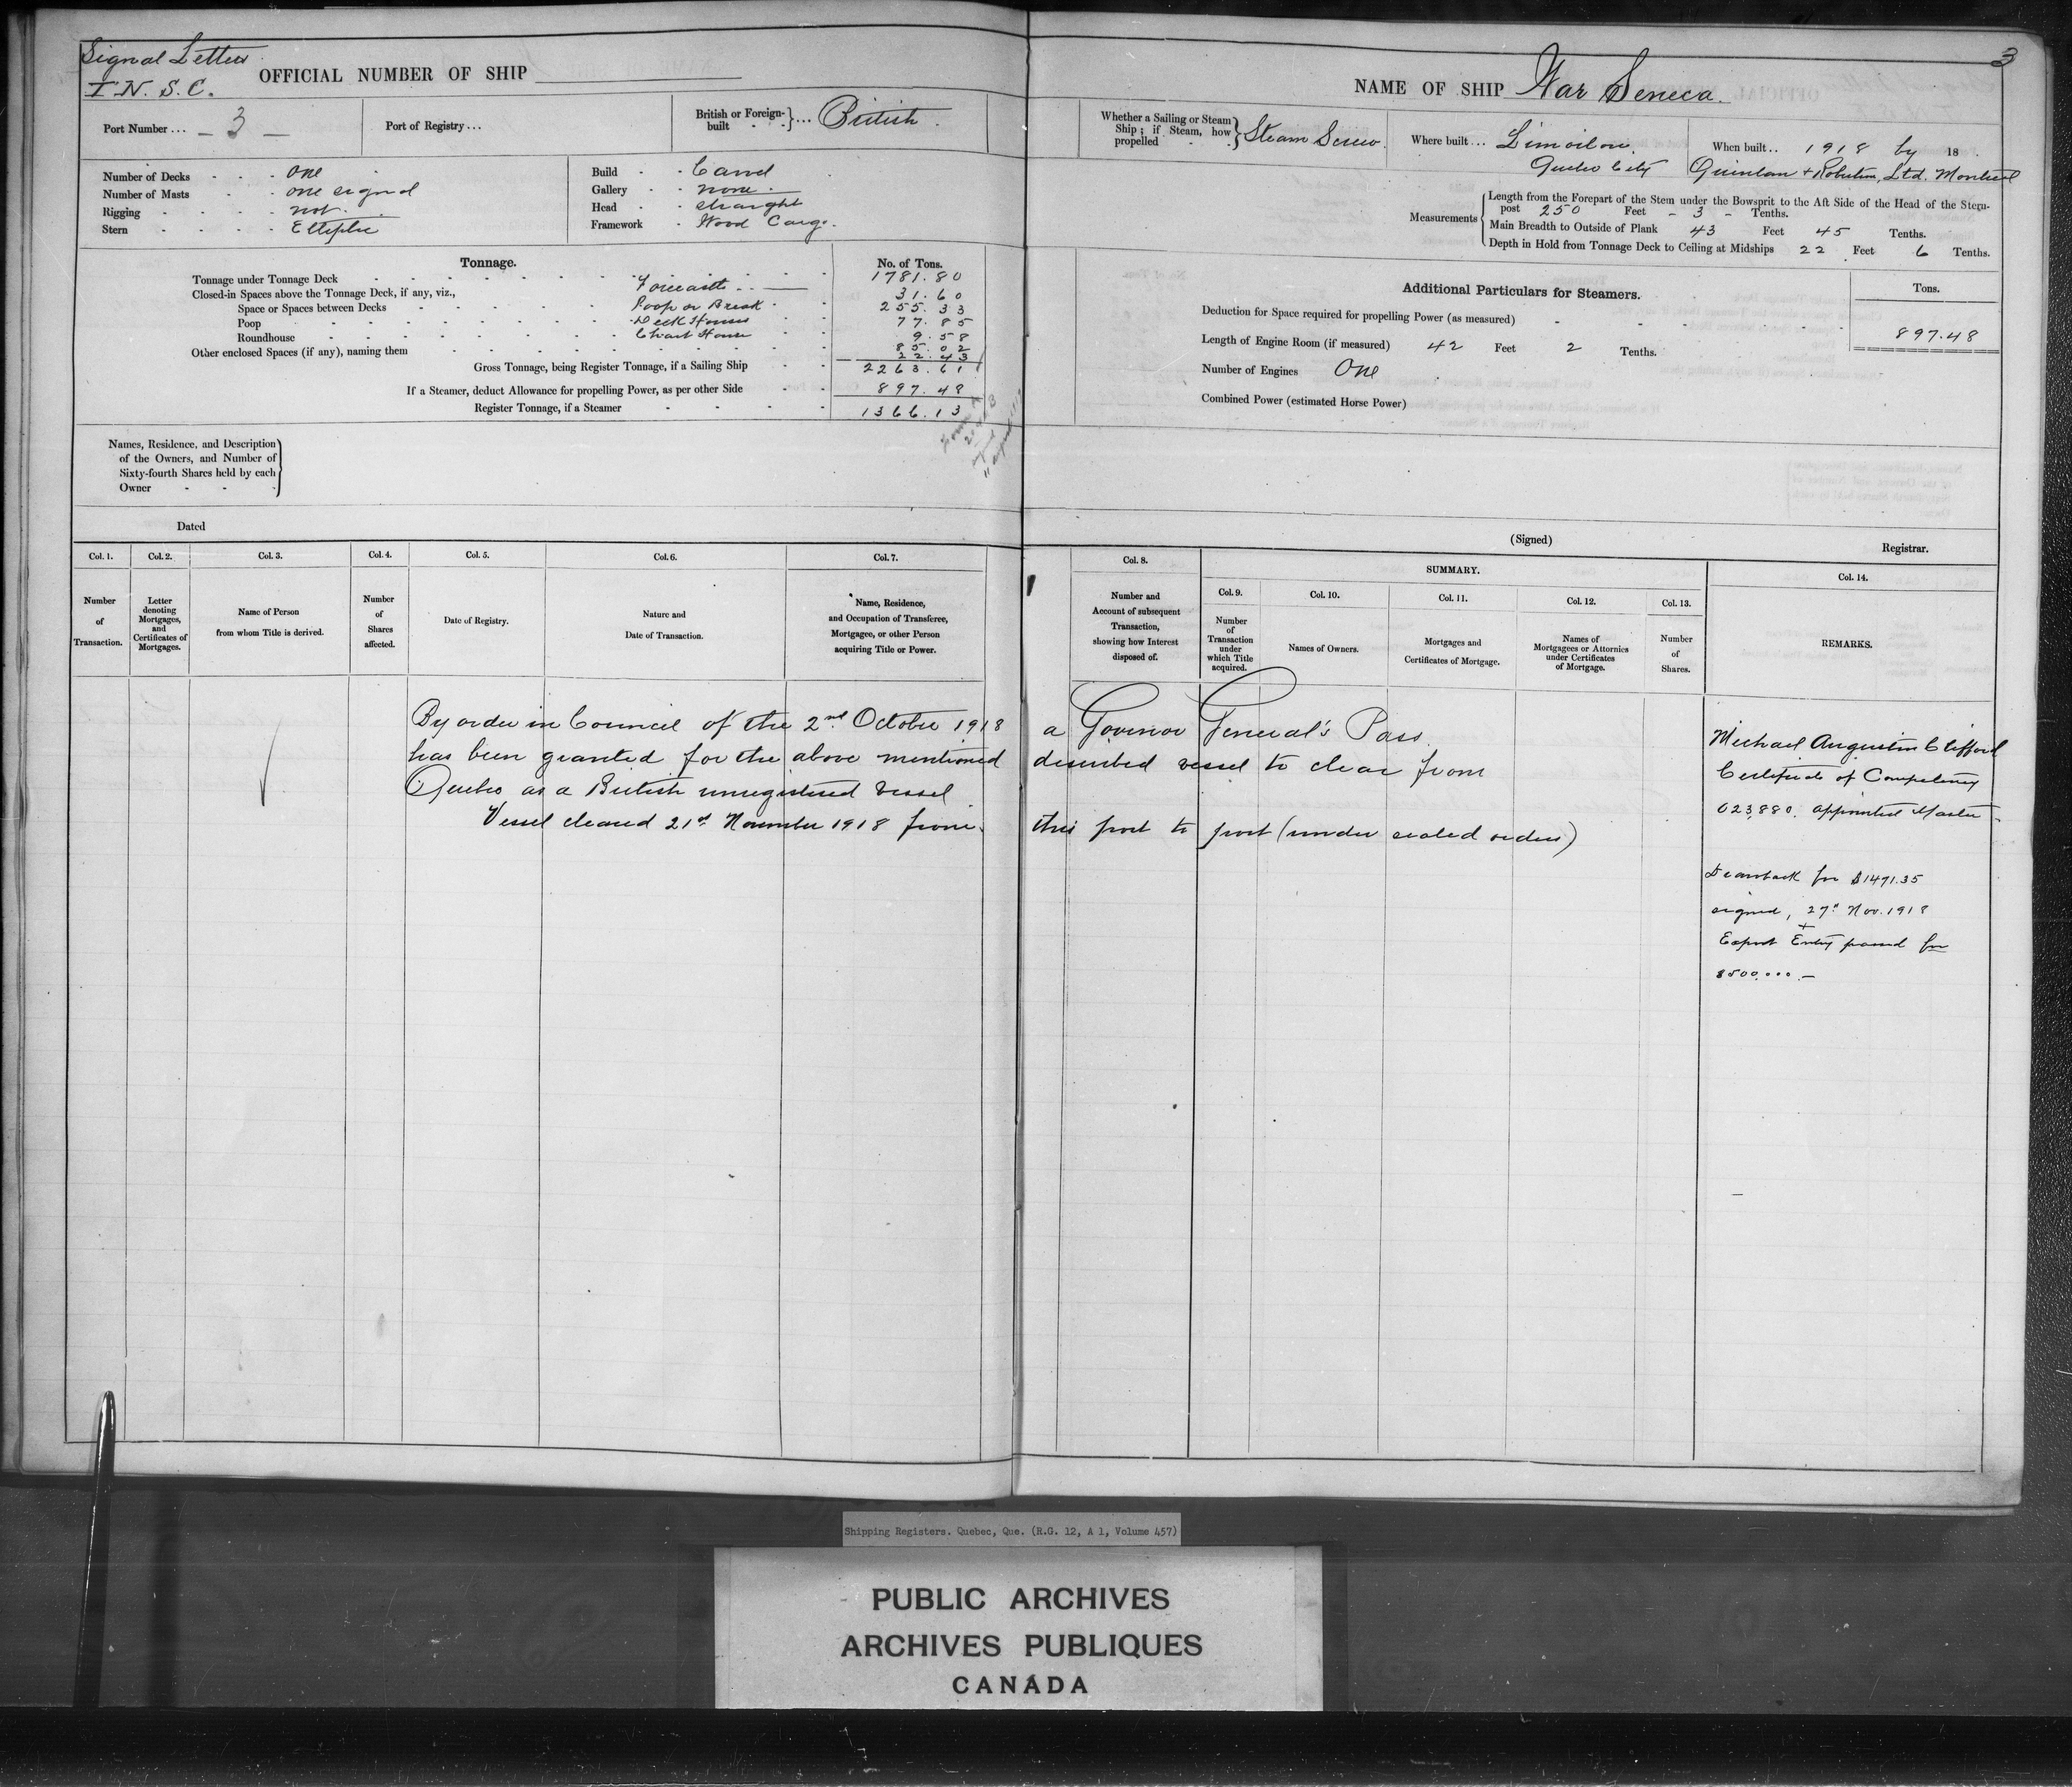 Signal Letters
T. N. S. C.
OFFICIAL NUMBER OF SHIP
Port Number ... - 3 -
Port of Registry ...
British or Foreign-built } ... British
Number of Decks - - - one
Number of Masts - - - one signal
Rigging - - - - not.
Stern - - - - Elliptic
Build - - Carvel
Gallery - - none.
Head - - straight
Framework - Wood Cargo.
Tonnage.
No. of Tons.
Tonnage under Tonnage Deck 1781.80
Closed-in Spaces above the Tonnage Deck, if any, viz., Forecastle 31.60
Space or Spaces between Decks Poop or Break 255.33
Poop Deck Houses 77.85
Roundhouse Chart House 9.58
Other enclosed Spaces (if any), naming them 85.02
22.43
Gross Tonnage, being Register Tonnage, if a Sailing Ship 2263.61
If a Steamer, deduct Allowance for propelling Power, as per other Side 897.48
Register Tonnage, if a Steamer 1366.13
Names, Residence, and Description of the Owners, and Number of Sixty-fourth Shares held by each Owner
Dated
Col. 1.
Number of Transaction.
Col. 2.
Letter denoting Mortgages, and Certificates of Mortgages.
Col. 3.
Name of Person from whom Title is derived.
Col. 4.
Number of Shares affected.
Col. 5.
Date of Registry.
Col. 6.
Nature and Date of Transaction.
Col. 7.
Name, Residence, and Occupation of Transferee, Mortgagee, or other Person acquiring Title or Power.
3
NAME OF SHIP War Seneca.
Whether a Sailing or Steam Ship; if Steam, how propelled } Steam Screw.
Where built ... Limoilou.
Quebec City
When built .. 1918 by 18
Quinlan & Robertson, Ltd. Montreal
Measurements
Length from the Forepart of the Stem under the Bowsprit to the Aft Side of the Head of the Stern-
post 250 Feet - 3 - Tenths.
Main Breadth to Outside of Plank 43 Feet 45 Tenths.
Depth in Hold from Tonnage Deck to Ceiling at Midships 22 Feet 6 Tenths.
Additional Particulars for Steamers.
Tons.
Deduction for Space required for propelling Power (as measured) 897.48
Length of Engine Room (if measured) 42 Feet 2 Tenths.
Number of Engines One
Combined Power (estimated Horse Power)
(Signed)
Registrar.
Col. 8.
Number and Account of subsequent Transaction, showing how Interest disposed of.
SUMMARY.
Col. 9.
Number of Transaction under which Title acquired.
Col. 10.
Names of Owners.
Col. 11.
Mortgages and Certificates of Mortgage.
Col. 12.
Names of Mortgagees or Attornies under Certificates of Mortgage.
Col. 13.
Number of Shares.
Col. 14.
REMARKS.
By order in Council of the 2nd October 1918 a Govenor General's Pass
has been granted for the above mentioned described vessel to clear from
Quebec as a British unregistered vessel
Vessel cleared 21st November 1918 from this port to port (under sealed orders)
Michael Augustin Clifford
Certificate of Competency
023,880. appointed Master -
Drawback for $1491.35
signed, 27th Nov. 1918
+
Export Entry passed for
$500.000.-
Shipping Registers. Quebec, Que. (R.G. 12, A 1, Volume 457)
PUBLIC ARCHIVES
ARCHIVES PUBLIQUES
CANADA